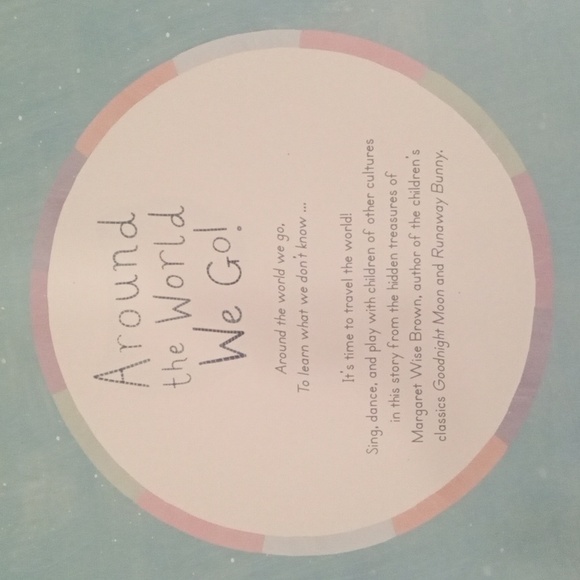 Around
the World
We Go!
Around the world we go,
To learn what we don't know ...
It's time to travel the world!
Sing, dance, and play with children of other cultures
in this story from the hidden treasures of
Margaret Wise Brown, author of the children's
classics Goodnight Moon and Runaway Bunny.